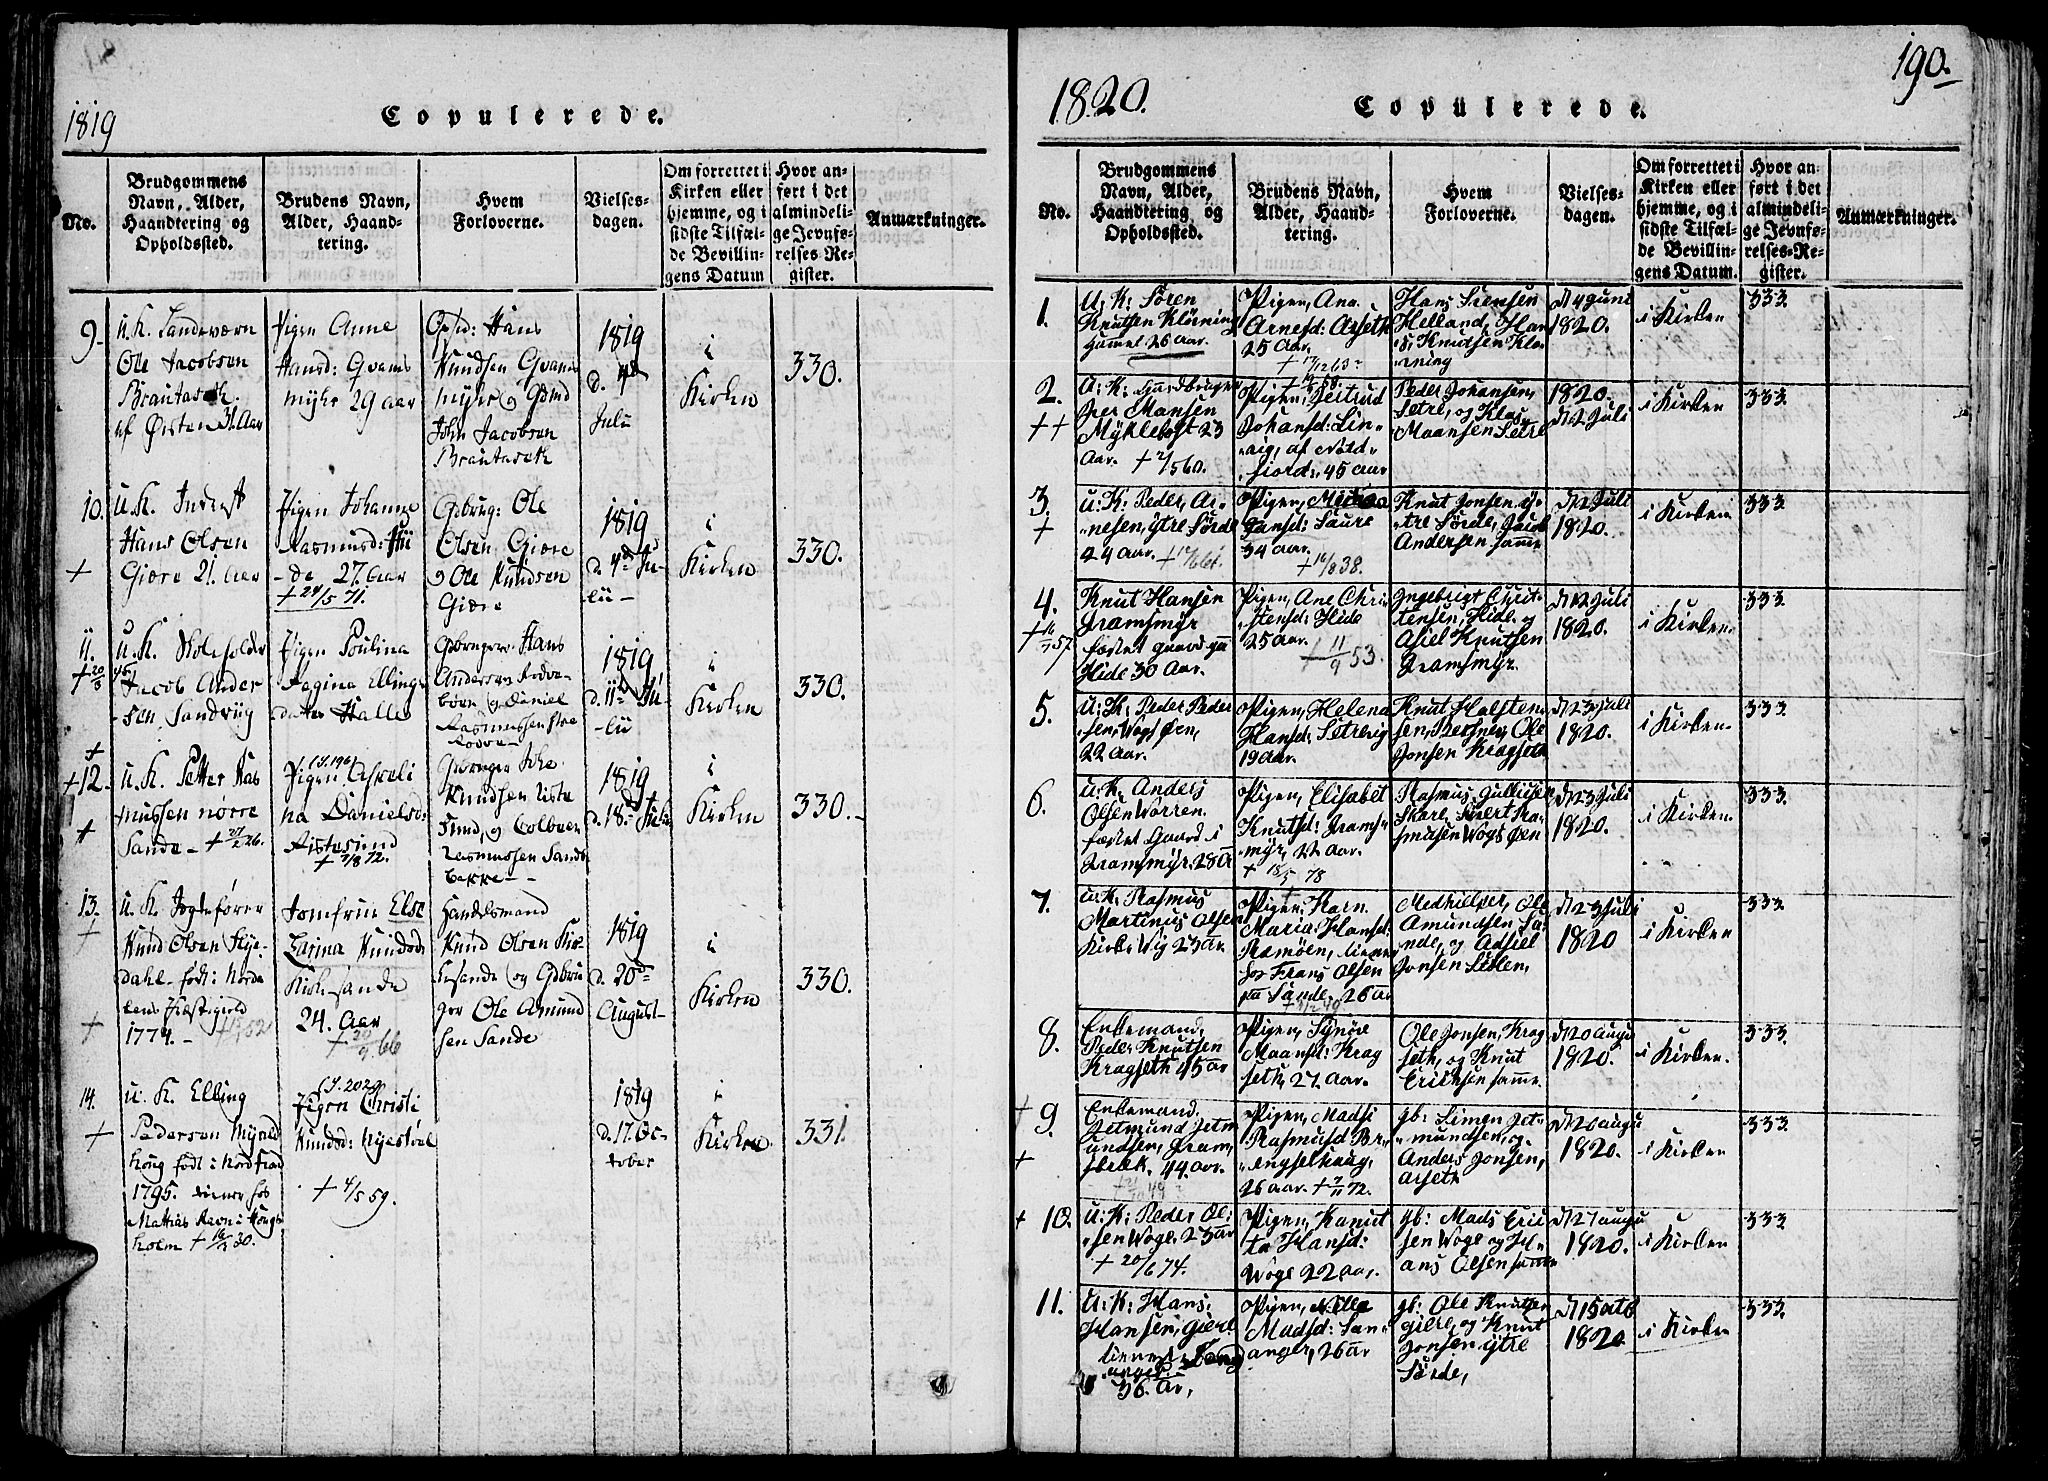 1819
Copulerede.
No.
Brudgommens
Navn, Alder,
Haandtering og
Opholdssted.
Brudens Navn,
Alder, Haand-
tering.
Hvem
Forloverne.
Vielses-
dagen.
Om forrettet i
Kirken eller
hjemme, og i
sidste Tilfæl-
de Bevillin-
gens Datum
Hvor an-
ført i det
almindeli-
ge Jevnfø-
relses-Re-
gister.
Anmærkninger.
9.
u. K. Landeværn
Ole Jacobsen
Brautaseth
af Ørsten 31 Aar
Pigen Anne
Hansd: Gvams
myhr 29 aar
Opsid: Hans
Knudsen Gvams
myhr og Gdmd
John Jacobsen
Brautaseth
1819
d. 4de
Julii
i
Kirken
330.
10.
+
u. K. Inderst
Hans Olsen
Giære 21. Aar
Pigen Johanne
Rasmusd: Hii
-de 27. Aar
+ 24/5 71.
Gbrug: Ole
Olsen Giøre
og Ole Knudsen
Giøre
1819
d. 4de Ju-
lii-
i
Kirken
330.
11.
+ 20/3 45
u. K. Skoleholder
Jacob Ander
-sen Sandviig
Pigen Poulina
Regina Ellings
datter Halle
Gbrugere Hans
Andersen
og Daniel
Rasmussen
1819
d. 11te Ju-
-lii
i
Kirken
330.
+
+12.
+
u. K. Petter Ras
mussen nörre
Sande - + 27/2 26.
(S. 196)
Pigen Aseli
na Danielsd:
Ristesund
+ 7/8 72.
Gbrugere
Knudsen Riste
Sund, og
Rasmussen Sands
bakke - -
1819
d. 18de Julii
i
Kirken
330.
13.
+
+
u. K. Jagtefører
Knud Olsen
dahl - født i Norda
lens Præstegield
1774. -
Jomfru Else
Karina Knudsd:
Kirkesande
24. Aar
+ 20/9 66
Handelsmand
Knud Olsen Kir
kesande og Gdbru
ger Ole Amund
sen Sande
1819
d. 20de
August-
i
Kirken
330.
14.
+
u. K. Elling
Pedersen Myrld
houg født i Nordfiord
1795. tiener hos
Mathias Ravn i Hougs
holm + 16/2 30.
(S. 202)
Pigen Christi
Knudsd: Myestøl
+ 4/5 59.
1819
d. 17. Oc-
tober
i
Kirken
331.
190.
1820.
Copulerede.
No.
Brudgommens
Navn, Alder,
Haandtering og
Opholdssted.
Brudens Navn,
Alder, Haand-
tering.
Hvem
Forloverne.
Vielses-
dagen.
Om forrettet i
Kirken eller
hjemme, og i
sidste Tilfæl-
de Bevillin-
gens Datum.
Hvor an-
ført i det
almindeli-
ge Jevnfø-
relses-Re-
gister.
Anmærkninger.
1.
U. K: Sören
Knutsen Klörning
gammel 26 aar.
Pigen, Ana
Arnesd: Arseth
25 Aar.
+ 17/12 63
Hans Sörensen
Helland, Han
s: Knutsen Klö
rning
d 4 Juni
1820.
i Kirken
333.
2.
++
U: K: Gardbruger
Per Mansen
Myklebost 23
Aar. + 2/5 60.
Pigen, Gertrud
Johansd: Lin-
vig, af Vold
fiord, 45 Aar
Peder Johansen,
Setre, og Klas
Maansen Setre
1820.
d 2 Juli
i Kirken
333.
3.
+
u: K: Peder Ar-
nesen, ytre Sörde
44 aar.
Pigen
Hansd: Saure
34 aar.
+ 14/8 38.
Knut Jonsen y-
tre Sörde, Jacob
Andersen samme
d 2 Juli
1820.
i Kirken
333.
4.
+ 16/7 57
Knut Hansen
Gramsmyr
fæstet gaard på
Hide 30 Aar.
Pigen, Ane Chri
stensd: Hide
25 Aar.
+ 11/9 53.
Ingebrigt Christ
tensen, Hide og
Asiel Knutsen
Gramsmyr.
d 2 Juli
1820.
i Kirken.
333.
5.
u: K. Peder Peder
sen, Wogs Øen,
22 Aar.
Pigen, Helena
Hansd: Setrevig
19 Aar.
Knut Halsten
sen, Ole
Jonsen Kragseth
d 23 Juli
1820.
i Kirken.
333.
6.
u: K. Anders
Olsen Worren.
fæstet Gaard i
Gramsmyr. 28 A
Pigen, Elisabet
Knutsd: Grams
myr, 22 Aar.
+ 18/5 78
Rasmus Gulliksen
Skare, Sivert Ra
smusen Wogs Øen
d 23 Juli
1820.
i Kirken.
333.
7.
u: K. Rasmus
Martinus Olsen
Kirke Wig 23 ar.
Pigen: Karn
Maria: Hansd:
Ramöen, tiener
for Frans Olsen
paa Sande, 26 ar
Medhielper, Ole
Amundsen Sa-
nde, og Adsiel
Jonsen
d 23 Juli
1820
i Kirken
333.
8.
Enkemand,
Peder Knutsen
Kragseth 45 ar
Pigen, Synöe
Maansd: Krag
seth, 27. Aar.
Ole Jonsen, Krag
seth, og Knut
Ericksen samme
d 20 augu
1820.
i Kirken.
333.
+ 9.
+
Enkemand.
Jetmund Jetm
undsen, Gram
sbrek. 44 ar.
Pigen, Madsi
Rasmusd Br
engselhaug,
26 aar. + 7/11 72.
gb: Simen Jet-
mundsen, og
Anders Jonsen,
Arseth
d 20 augu
1820.
i Kirken
333.
+ 10.
u: K: Peder Ol-
sen Woge, 23 ar
+ 20/6 74.
Pigen, Kanut
ta Hansd:
Woge 22 aar.
gb: Mads Eric
sen Woge og H-
ans Olsen samme
d 27 augu
1820.
i Kirken
333.
11.
U: K: Hans:
Hansen, Giere
tiener i Sand
anger.
36. Ar,
Pigen, Nille
Madsd: San-
anger, 26 ar
gb: Ole Knutsen
giere, og Knut
Jonsen ytre
Sörde,
d 15 octb
1820
i Kirken
333.